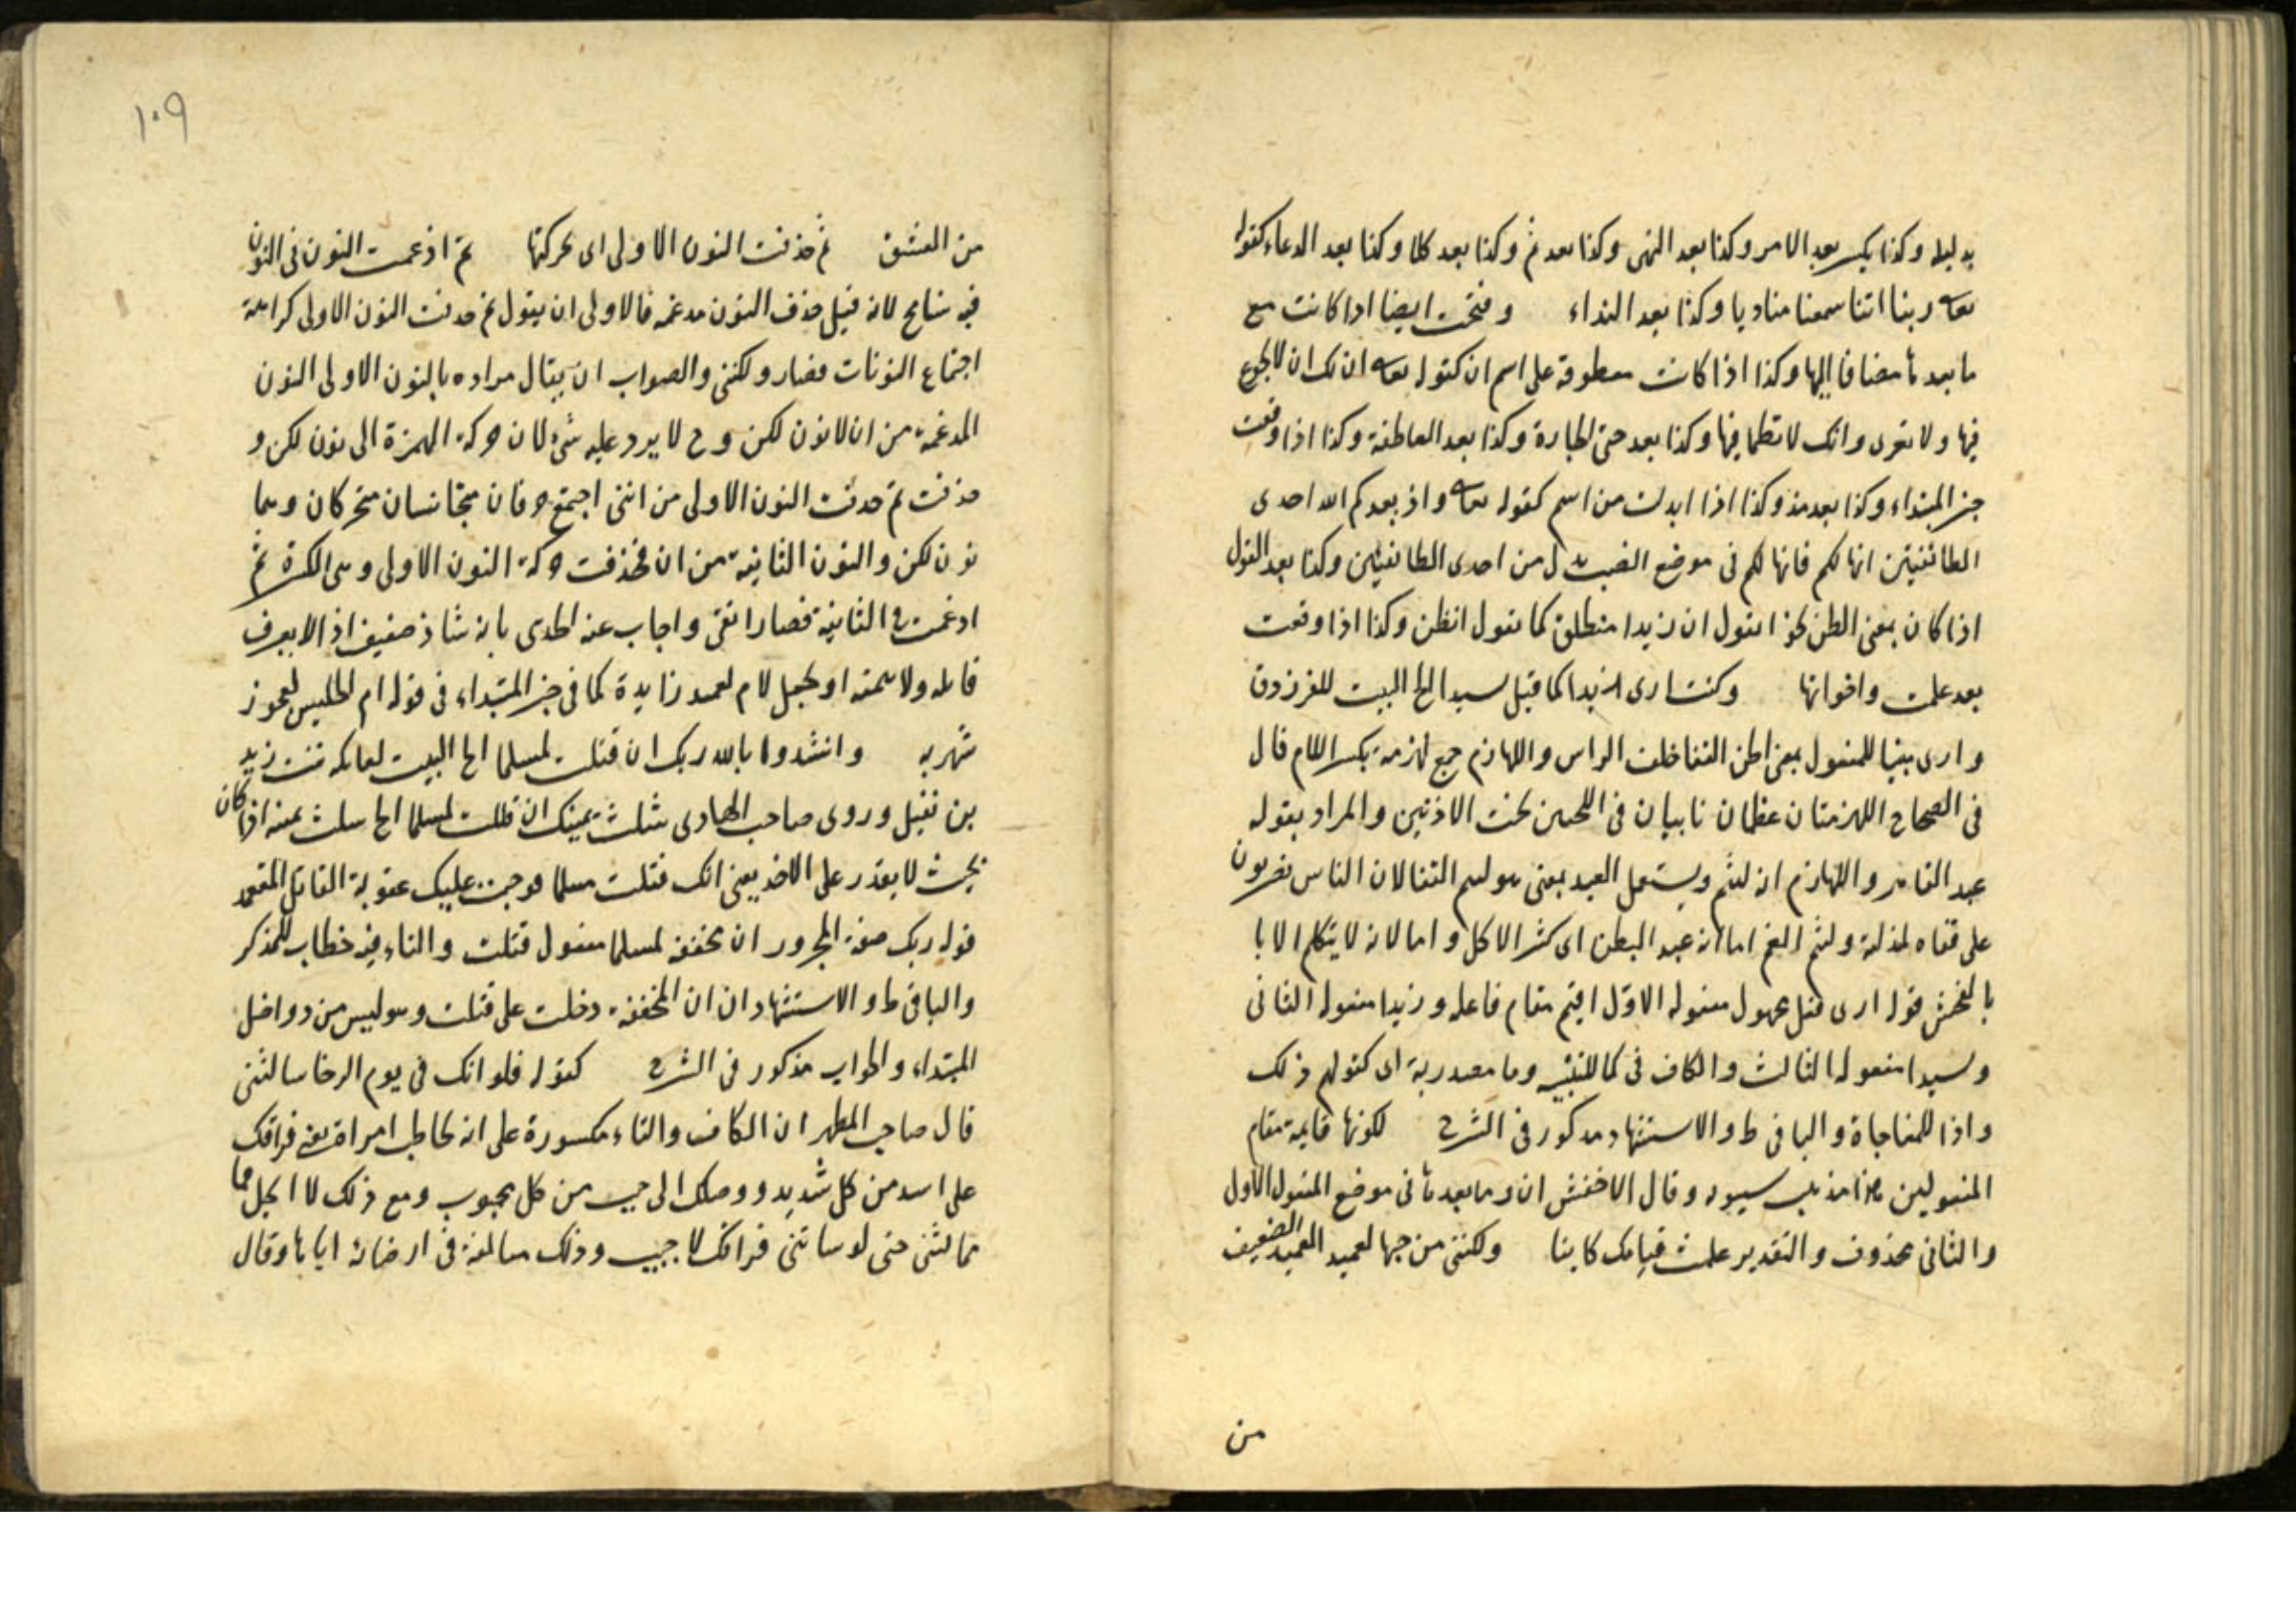 بدليله وكذا يكسر بعد الامر وكذا بعد النهى وكذا بعد ثم وكذا بعد كلا وكذا بعد الدعاء كقوله
تعالى ربنا اننا سمعنا مناديا وكذا بعد النداء وفتحت ايضا اذا كانت مع
ما بعدها مضافا اليها وكذا اذا كانت معطوفة على اسم ان كقوله تعالى ان لك ان لا تجوع
فيها ولا تعرى وانك لا تظما فيها وكذا بعد حتى الجارة وكذا بعد العاطفة وكذا اذا وقعت
خبر المبتداء وكذا بعد مذ وكذا اذا ابدلت من اسم كقوله تعالى واذ يعدكم الله احدى
الطائفتين انها لكم فانها لكم فى موضع النصب بدل من احدى الطائفتين وكذا بعد القول
اذا كان بمعنى الظن نحو اتقول ان زيدا منطلق كما تقول اتظن وكذا اذا وقعت
بعد علمت واخواتها وكنت ارى زيدا كما قيل سيدا الخ البيت للفرزدق
وارى مبنيا للمفعول بمعنى اظن القفا خلف الراس واللهازم جمع لهزمة بكسر اللام قال
فى الصحاح اللهزمتان عظمان ناتيان فى اللحيين تحت الاذنين والمراد بقوله
عبد القفا واللهازم انه لئيم ويستعمل العبد بمعنى لئيم القفا لان الناس يضربون
على قفاه لمذلة ولئيم الفم اما انه عبد البطن اى كثر الاكل واما لانه لا يتكلم الا با
بالفحش قوله ارى فعل مجهول مفعوله الاول اقيم مقام فاعله وزيدا مفعوله الثانى
وسيدا مفعوله الثالث والكاف فى كما للتشبيه وما مصدرية اى كقولهم ذلك
واذا للمفاجاة والباقى ط والاستشهاد مذكور فى الشرح لكونها قايمة مقام
المفعولين هذا مذهب سيبويه وقال الاخفش ان وما بعدها فى موضع المفعول الاول
والثانى محذوف والتقدير علمت قيامك كاينا ولكننى من حبها لعميد العميد الضعيف
من
١٠٩
من العشق ثم حذفت النون الاولى اى حركتها ثم ادغمت النون فى النون
فيه تسامح لانه قبل حذف النون مدغمة فالاولى ان يقول ثم حذفت النون الاولى كراهة
اجتماع النونات فصار ولكننى والصواب ان يقال مراده بالنون الاولى النون
المدغمة من ان لا نون لكن وح لا يرد عليه شئ لان حركة الهمزة الى نون لكن و
حذفت ثم حذفت النون الاولى من اننى اجتمع حرفان متجانسان متحركان وهما
نون لكن والنون الثانية من ان فحذفت حركة النون الاولى وهى الكسرة ثم
ادغمت فى الثانية فصار واجاب عنه بانه شاذ ضعيف اذ لا يعرف
قايله ولا تتمته او يجعل لام لعميد زايدة كما فى خبر المبتداء فى قوله ام الحليس لعجوز
شهربه وانشدوا بالله ربك ان قتلت لمسلما الخ البيت لعاتكه بنت زيد
بن نفيل وروى صاحب الهادى شلت يمينك ان قتلت لمسلما الخ شلت يمينه اذا كان
بحيث لا يقدر على الاخذ يعنى انك قتلت مسلما فوجبت عليك عقوبة القاتل المتعمد
قوله ربك صفة المجرور ان مخففة لمسلما مفعول قتلت والتاء فيه خطاب للمذكر
والباقى ط والاستشهاد ان ان المخففة دخلت على قتلت وهو ليس من دواخل
المبتداء والجواب مذكور فى الشرح كقوله فلو انك فى يوم الرخا سالتنى
قال صاحب المظهر ان الكاف والتاء مكسورة على انه يخاطب امراة يعنى فراقك
على اشد من كل شديد ووصلك الى حبيب من كل محبوب ومع ذلك لا ابخل مما
مما لتنى حتى لو سالتنى فراقك لاجيب وذلك مبالغة فى ارضائه اياها وقال